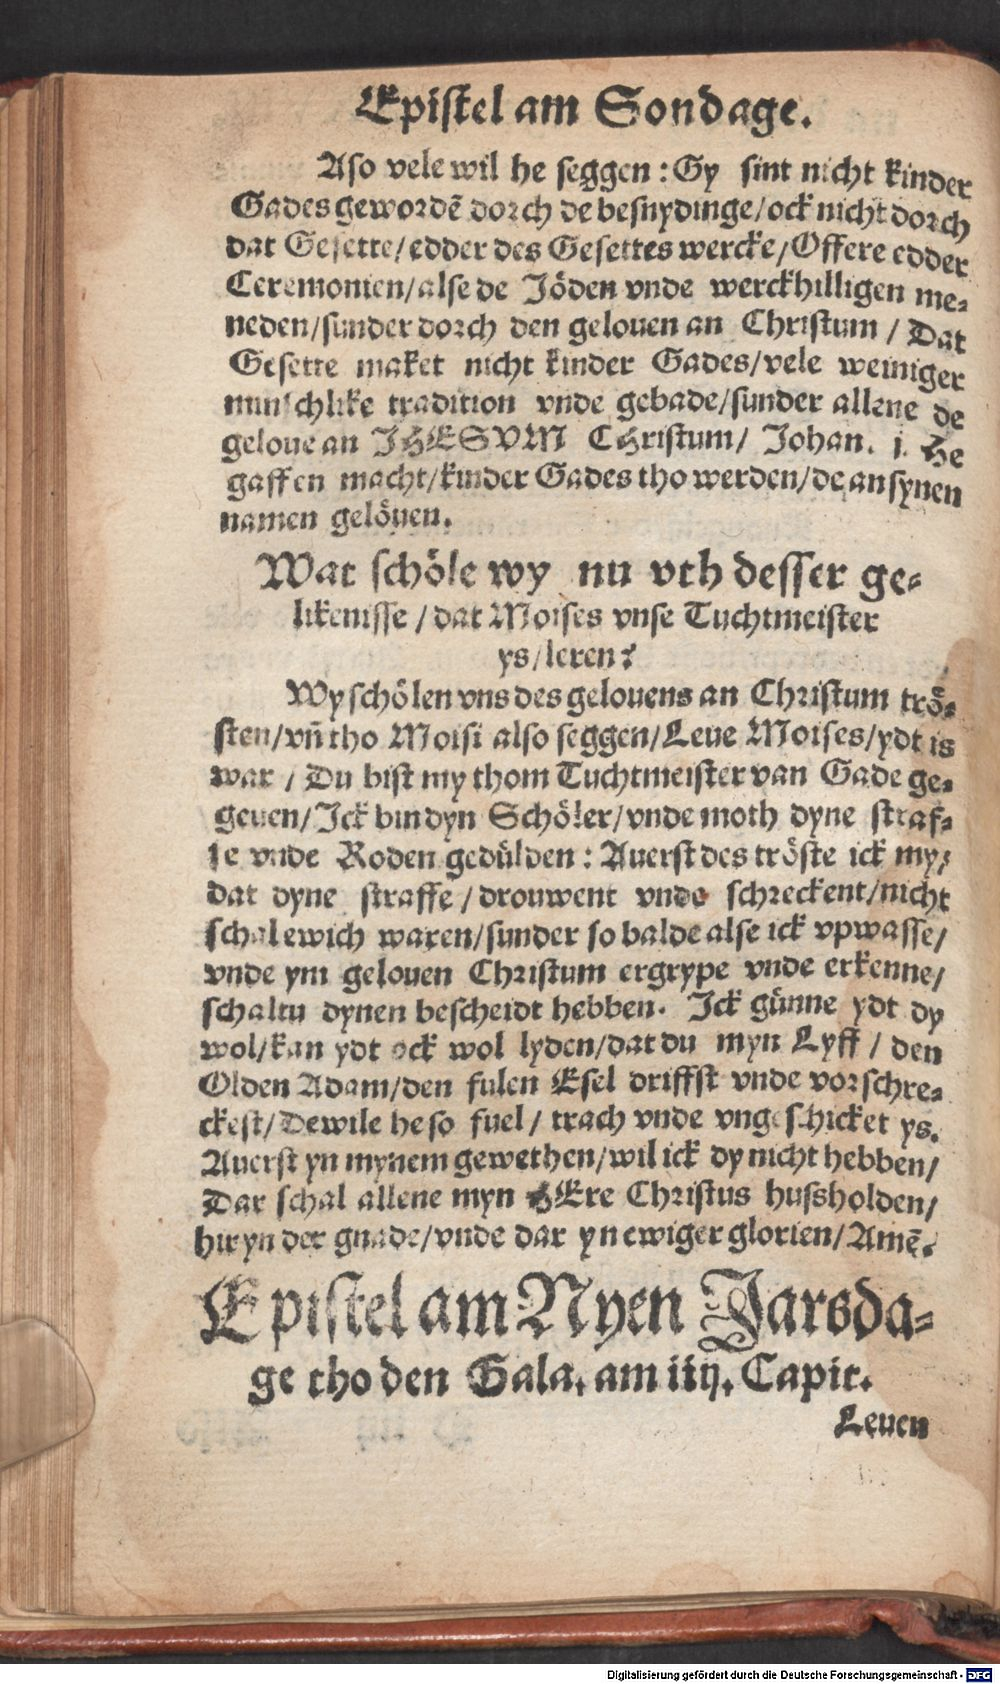 Epistel am Sondage.
Aso vele wil he seggen: Gy sint nicht kinder
Gades gewordē dorch de besnydinge/ock nicht dorch
dat Gesette/edder des Gesettes wercke/Offere edder
Ceremonien/alse de Jöden vnde werckhilligen me-
neden/sunder dorch den gelouen an Christum / Dat
Gesette maket nicht kinder Gades/vele weiniger
minschlike tradition vnde gebade/sunder allene de
geloue an JHESVM CHristum/ Johan. j. He
gaff en macht/kinder Gades tho werden/de an synen
namen gelöuen.
Wat schöle wy nu vth desser ge-
likenisse / dat Moises vnse Tuchtmeister
ys/leren?
Wy schölen vns des gelouens an Christum trö-
sten/vn̄ tho Moisi also seggen/Leue Moises/ydt is
war / Du bist my thom Tuchtmeister van Gade ge-
geuen/Ick bin dyn Schöler/vnde moth dyne straf-
fe vnde Roden gedülden: Auerst des tröste ick my/
dat dyne straffe / drouwent vnde schreckent/nicht
schal ewich waren/sunder so balde alse ick vpwasse/
vnde ym gelouen Christum ergrype vnde erkenne/
schaltu dynen bescheidt hebben. Ick günne ydt dy
wol/kan ydt ock wol lyden/dat du myn Lyff / den
Olden Adam/den fulen Esel driffst vnde vorschre-
ckest/Dewile he so fuel / trach vnde vngeschicket ys.
Auerst yn mynem gewethen/wil ick dy nicht hebben/
Dar schal allene myn HEre Christus hussholden/
hir yn der gnade/vnde dar yn ewiger glorien/Amē.
Epistel am Nyen Jarsda-
ge tho den Gala. am iiij. Capit.
Leuen
Digitalisierung gefördert durch die Deutsche Forschungsgemeinschaft - DFG